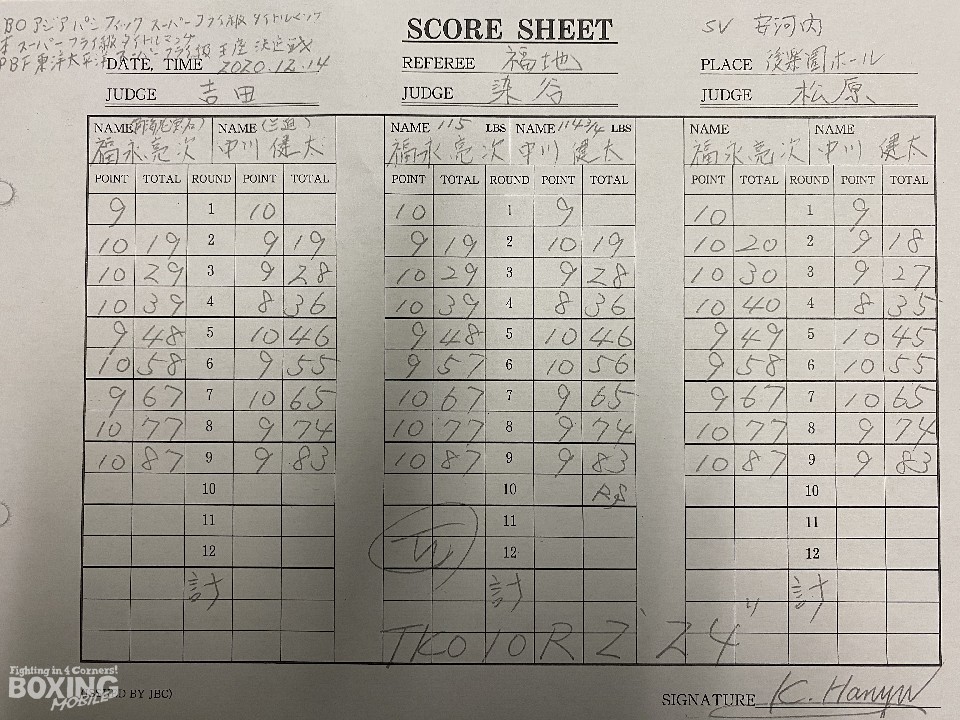 BO アジアパシフィック スーパーフライ級 タイトルマッチ
スーパーフライ級タイトルマッチ
東洋太平洋 スーパーフライ級 王座決定戦
SCORE SHEET
SV 安河内
DATE, TIME 2020.12.14 REFEREE 福地 PLACE 後楽園ホール
JUDGE 吉田 JUDGE 染谷 JUDGE 松原
NAME NAME NAME 115 LBS NAME 114 3/4 LBS NAME NAME
福永亮次 中川 健太 福永亮次 中川 健太 福永亮次 中川 健太
POINT TOTAL ROUND POINT TOTAL POINT TOTAL ROUND POINT TOTAL POINT TOTAL ROUND POINT TOTAL
9 1 10 10 1 9 10 1 9
10 19 2 9 19 9 19 2 10 19 10 20 2 9 18
10 29 3 9 28 10 29 3 9 28 10 30 3 9 27
10 39 4 8 36 10 39 4 8 36 10 40 4 8 35
9 48 5 10 46 9 48 5 10 46 9 49 5 10 45
10 58 6 9 55 9 57 6 10 56 9 58 6 10 55
9 67 7 10 65 10 67 7 9 65 9 67 7 10 65
10 77 8 9 74 10 77 8 9 74 10 77 8 9 74
10 87 9 9 83 10 87 9 9 83 10 87 9 9 83
10 10 10
11 11 11
12 W 12 12
計 計 計
TKO 10R 2'24"
Fighting in 4 Corners!
BOXING
MOBILE
BY JBC)
SIGNATURE K. Hanyu